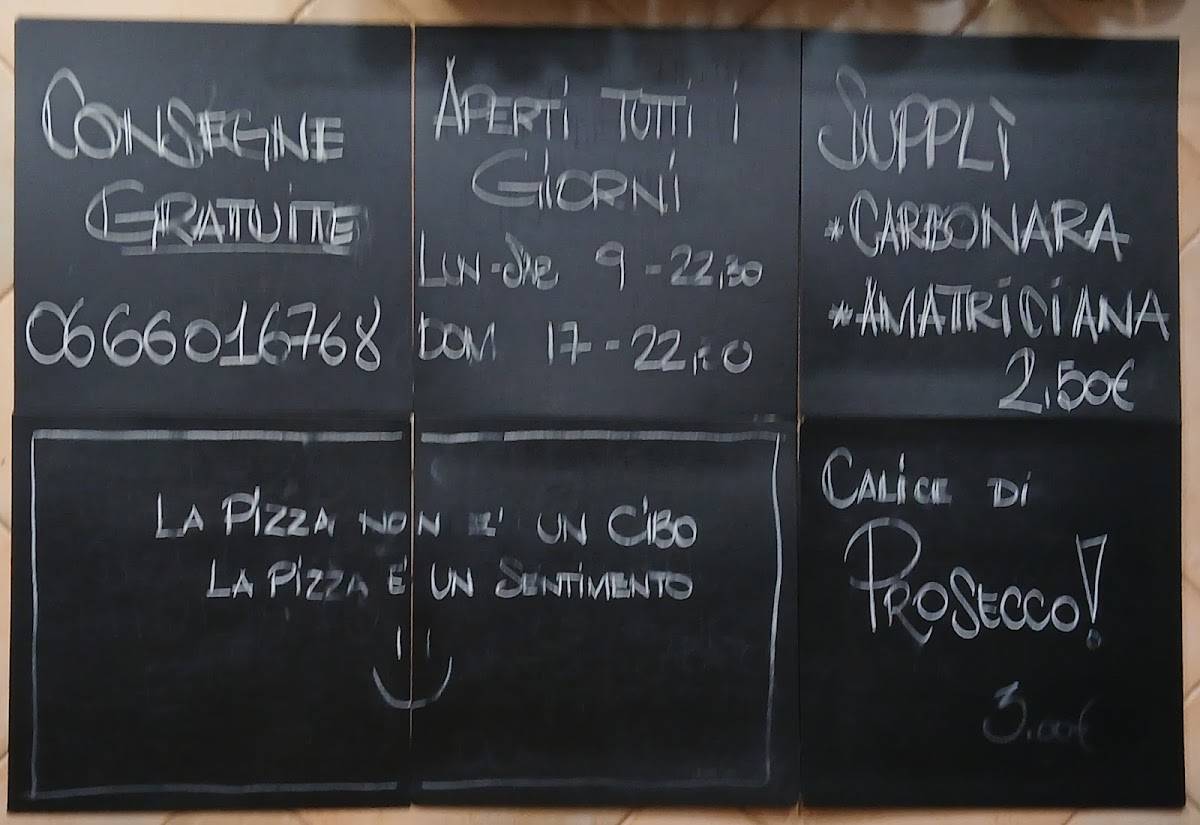 CONSEGNE
GRATUITE
0666016768
APERTI TUTTI I
GIORNI
LUN-SAB 9-22,30
DOM 17-22,30
SUPPLÌ
*CARBONARA
*AMATRICIANA
2,50€
LA PIZZA NON E' UN CIBO
LA PIZZA E' UN SENTIMENTO
CALICE DI
PROSECCO!
3,00€